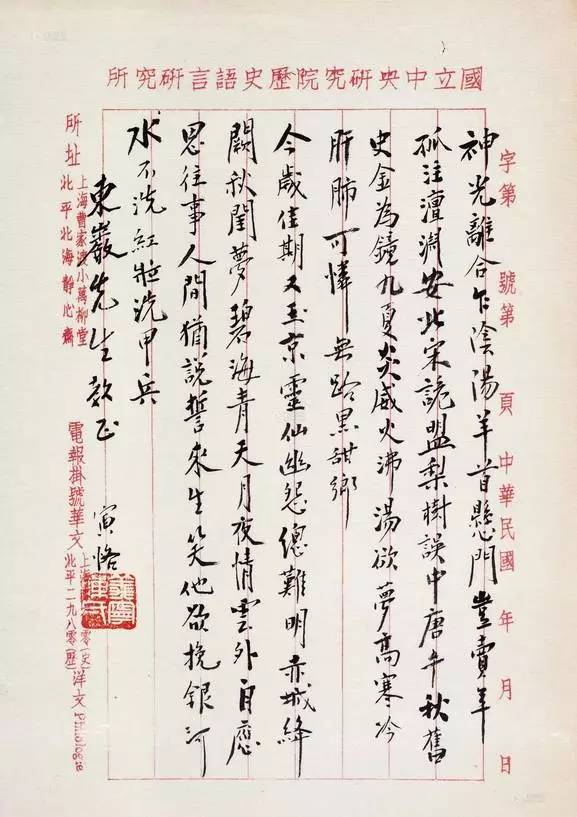 國立中央研究院歷史語言研究所
字第 號第 頁 中華民國 年 月 日
神光離合乍陰陽羊首懸門豈賣羊
孤注澶淵安北宋詭盟梨樹誤中唐千秋舊
史金為鏡九夏炎威火沸湯欲夢高寒冷
肝肺可憐無路黑甜鄉
今歲佳期又玉京靈仙幽怨總難明赤城絳
闕秋閨夢碧海青天月夜情雲外自應
思往事人間猶說誓來生笑他欲挽銀河
水不洗紅妝洗甲兵
東巖先生教正 寅恪
所址
上海曹家渡小萬柳堂
北平北海靜心齋
電報掛號華文
上海 零
北平二九八零(歷)
洋文 Philologia